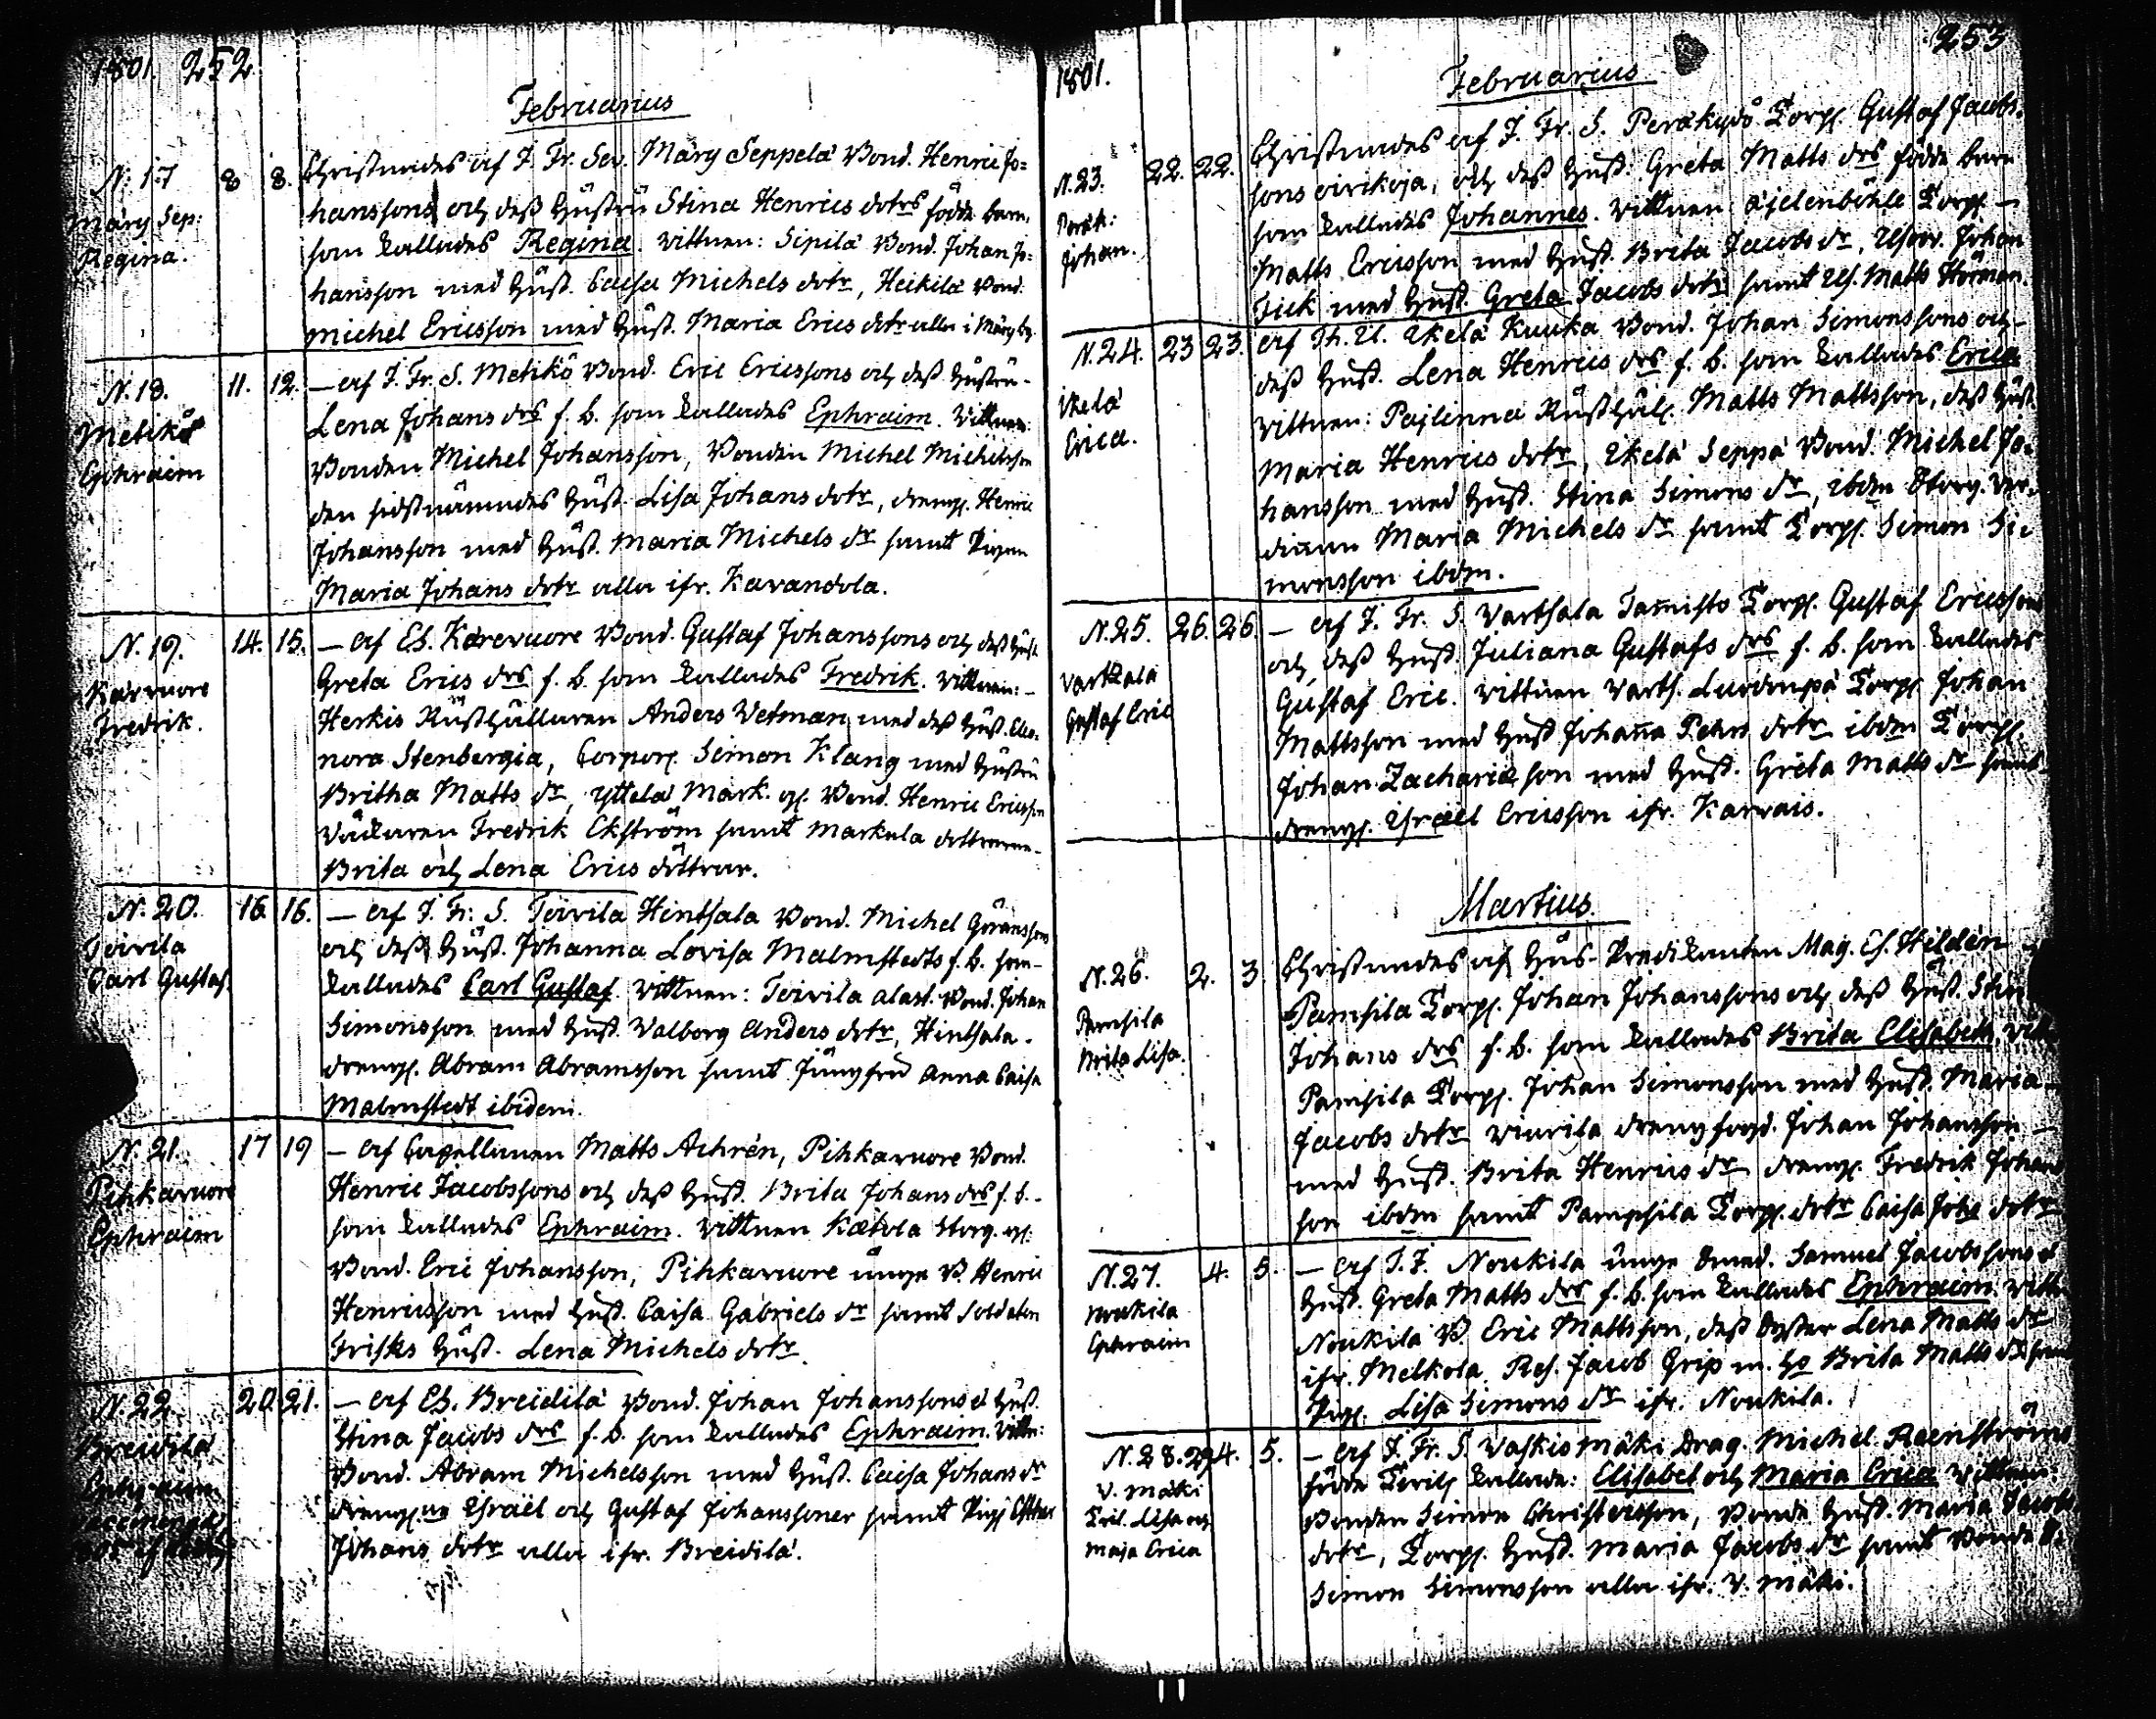 1801. 252
Februarius
N: 17 8 8. Christnades af J. Fr. Sev. Märy Seppelä Bond. Henric Jo=
Märy Sep: hanssons och deß Hustru Stina Henrics dotrs födde barn,
Regina. som kallades Regina. Vittnen: Sipilä Bond. Johan Jo=
hansson med Hust. Caisa Michels dotr, Heikilä Bond.
Michel Ericsson med Hust. Maria Erics dotr alla i Märy by.
N. 18. 11. 12. — af J. Fr. S. Metikö Bond. Eric Ericssons och deß Hustru
Metikö Lena Johans drs f. b. som kallades Ephraim. Vittnen
Ephraim Bonden Michel Johansson, Bonden Michel Michelsson
den sidstnämndes Hust. Lisa Johans dotr, dreng. Henric
Johansson med Hust. Maria Michels dr samt Pigan
Maria Johans dotr alla ifr. Kavandola.
N. 19. 14. 15. — af Es. Kärevuore Bond. Gustaf Johanssons och deß Hust.
Kärvuore Greta Erics drs f. b. som kallades Fredrik. Vittnen:
Fredrik. Herkis Rusthållaren Anders Vetman med deß Hust. Eleo-
nora Stenbergia, Corpor. Simon Klang med Hustru
Britha Matts dr, Yttelä Mark. Bond. Henric Ericsson
Fredrik Ekström samt Markula döttrarne
Brita och Lena Erics döttrar.
N. 20. 16. 16. — af J. Fr. S. Toivila Hinthala Bond. Michel Göranssons
Toivila och deß Hust. Johanna Lovisa Malmstedts f. b. som
Carl Gustaf. kallades Carl Gustaf. Vittnen: Toivila alast. Bond. Johan
Simonsson med Hust. Valborg Anders dotr, Hinthala
dreng. Abram Abramsson samt Jungfru Anna Caisa
Malmstedt ibidem.
N. 21. 17 19 — af Capellanen Matts Achrén, Pihkavuore Bond.
Pihkavuore Henric Jacobssons och deß Hust. Brita Johans drs f. b.
Ephraim som kallades Ephraim. Vittnen Kætola Storg.
Bond. Eric Johansson, Pihkavuore unge B. Henric
Henricsson med Hust. Caisa Gabriels dr samt Soldaten
Frisks Hust. Lena Michels dotr.
N. 22. 20. 21. — af Es. Breidilä Bond. Johan Johanssons Hust.
Breidilä Stina Jacobs drs f. b. som kallades Ephraim. Vittn:
Ephraim Bond. Abram Michelsson med Hust. Caisa Johans dr
Israël och Gustaf Johanssoner samt Pig. Esther
Johans dotr alla ifr. Breidilä.
253
1801. Februarius
N. 23. 22. 22. Christnades af J. Fr. S. Peräkydö Torp. Gustaf Jacobs-
Peräk: sons och deß Hust. Greta Matts drs födde barn
Johan. som kallades Johannes. Vittnen Torp. —
Matts Ericsson med Hust. Brita Jacobs dr, Johan
Fick med Hust. Greta Jacobs dotr samt Matts Hörman.
N. 24. 23 23. af Th. U. Ekelä Kuuka Bond. Johan Simonssons och
Ekelä deß Hust. Lena Henrics drs f. b. som kallades Erica
Erica. Vittnen: Pajlinna Rusthåll. Matts Mattsson, deß Hust.
Maria Henrics dotr, Ekelä Seppä Bond. Michel Jo-
hansson med Hust. Stina Simons dr, ibdm
Maria Michels dr samt Torp. Simon Si-
monsson ibdm.
N. 25. 26. 26. — af J. Fr. S. Varthala Tamisto Torp. Gustaf Ericssons
Varthala och deß Hust. Juliana Gustafs drs f. b. som kallades
Gustaf Eric Gustaf Eric. Vittnen Varth. Torp. Johan
Mattsson med Hust Johanna Pehrs dotr ibdm Torp.
Johan Zachariæson med Hust. Greta Matts dr samt
dreng. Israël Ericsson ifr. Karvais.
Martius
N. 26. 2. 3. Christnades af Hus-Predikanten Mag. Es. Hildén
Pamsila Pamsila Torp. Johan Johanssons och deß Hust. Stina
Brita Lisa. Johans drs f. b. som kallades Brita Elisabeth. Vitt.
Pamsila Torp. Johan Simonsson med Hust. Maria
Jacobs dotr Viurila drengfogd. Johan Johansson —
med Hust. Brita Henrics dr dreng. Fredrik Johans-
son ibdm samt Pampsila Torp. dotr Caisa Johs dotr
N. 27. 4. 5. — af J. F. Noukila unge Samuel Jacobssons
Noukila Hust. Greta Matts drs f. b. som kallades Ephraim. Vittn
Ephraim Noukila B. Eric Mattsson, deß Syster Lena Matts dr
ifr. Melkola, Res. Jacob Grip m. Brita Matts dr samt
Pig. Lisa Simons dr ifr. Noukila.
N. 28. 29. 4. 5. — af J. Fr. S. Vaskismäki Drag. Michel Reenströms
V. mäki födde kallade: Elisabet och Maria Erica Vittnen:
Lisa och Bonden Simon Christersson, Bonde Hust. Maria Jacobs
Maja Erica dotr, Torp. Hust. Maria Jacobs dr samt Bonde
Simon Simonsson alla ifr. V. mäki.